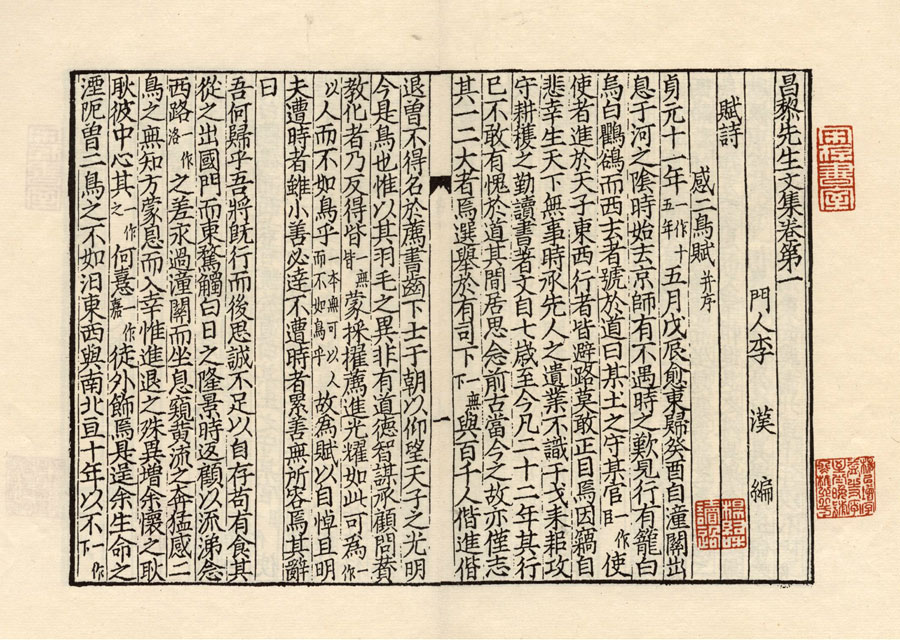 昌黎先生文集卷第一
門人李 漢 編
賦詩
感二鳥賦 并序
貞元十一年一作十五年五月戊辰愈東歸癸酉自潼關出
息于河之陰時始去京師有不遇時之歎見行有籠白
烏白鸜鵒而西去者號於道曰某土之守某官一作臣使
使者進於天子東西行者皆避路莫敢正目焉因竊自
悲幸生天下無事時承先人之遺業不識干戈耒耜攻
守耕穫之勤讀書著文自七歲至今凡二十二年其行
已不敢有愧於道其間居思念前古當今之故亦僅志
其一二大者焉選舉於有司下一無下與百千人偕進偕
一
退曽不得名於薦書齒下士于朝以仰望天子之光明
今是鳥也惟以其羽毛之異非有道德智謀承顧問賛
教化者乃反得皆一無皆蒙採擢薦進光耀如此可為一作
以人而不如鳥乎一本無可以人而不如鳥乎故為賦以自悼且明
夫遭時者雖小善必逹不遭時者累善無所容焉其辭
曰
吾何歸乎吾將既行而後思誠不足以自存苟有食其
從之出國門而東騖觸白日之隆景時返顧以流涕念
西路一作洛之羌永過潼關而坐息窺黃流之奔猛感二
鳥之無知方蒙恩而入幸惟進退之殊異增余懷之耿
耿彼中心其一作之何憙一作嘉徒外飾焉是逞余生命之
湮阨曽二鳥之不如汨東西與南北亘十年以不一作下